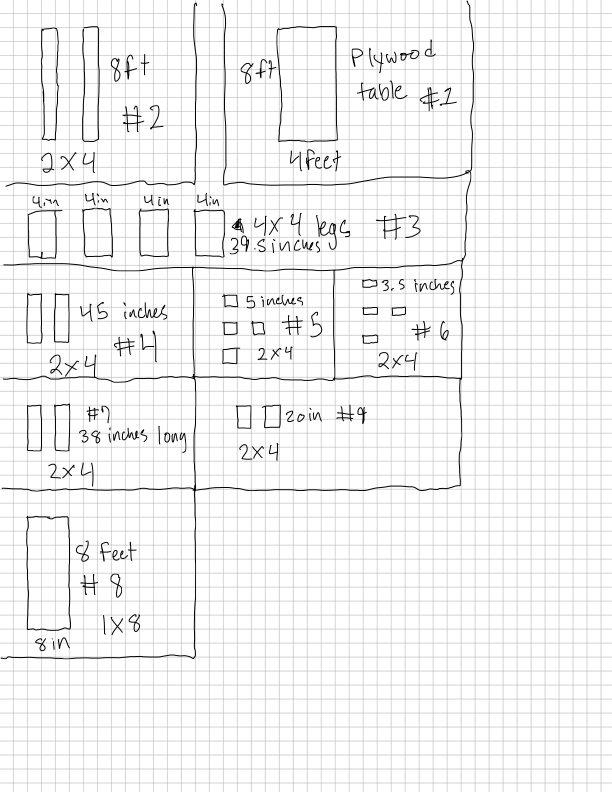 8ft
#2
2x4
8ft
Plywood
table #1
4feet
4in 4in 4in 4in
4x4 legs #3
39.5inches
45 inches
#4
2x4
5 inches
#5
2x4
3.5 inches
#6
2x4
#7
38 inches long
2x4
20in #9
2x4
8 feet
#8
1x8
8in